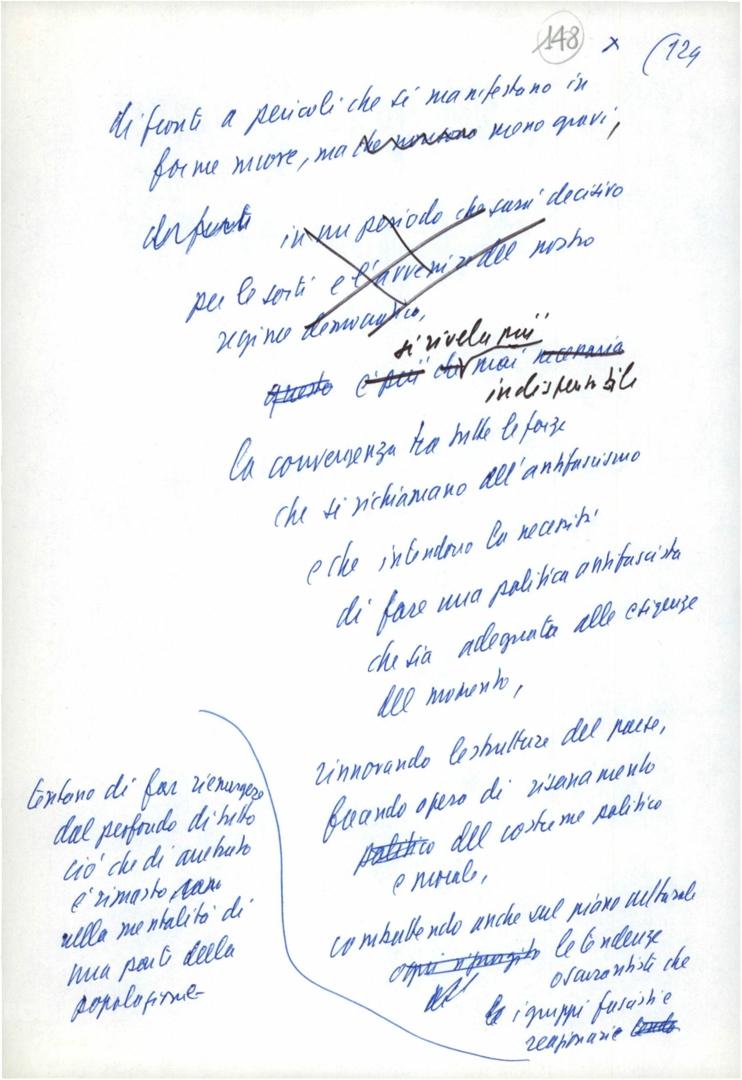 148 x (124
di fronte a pericoli che si manifestano in
forme nuove, ma che non sono meno gravi,
in un periodo che sarà decisivo
per le sorti e l'avvenire del nostro
regime democratico,
si rivela più
questo è più che mai necessaria
indispensabile
la convergenza tra tutte le forze
che si richiamano all'antifascismo
e che intendono la necessità
di fare una politica antifascista
che sia adeguata alle esigenze
del momento,
rinnovando le strutture del paese,
facendo opera di risanamento
politico del costume politico
e morale,
combattendo anche sul piano culturale
ogni rigurgito le tendenze
oscurantiste che
i gruppi fascisti e
reazionari
tentano di far riemergere
dal profondo di tutto
ciò che di arretrato
è rimasto
nella mentalità di
una parte della
popolazione